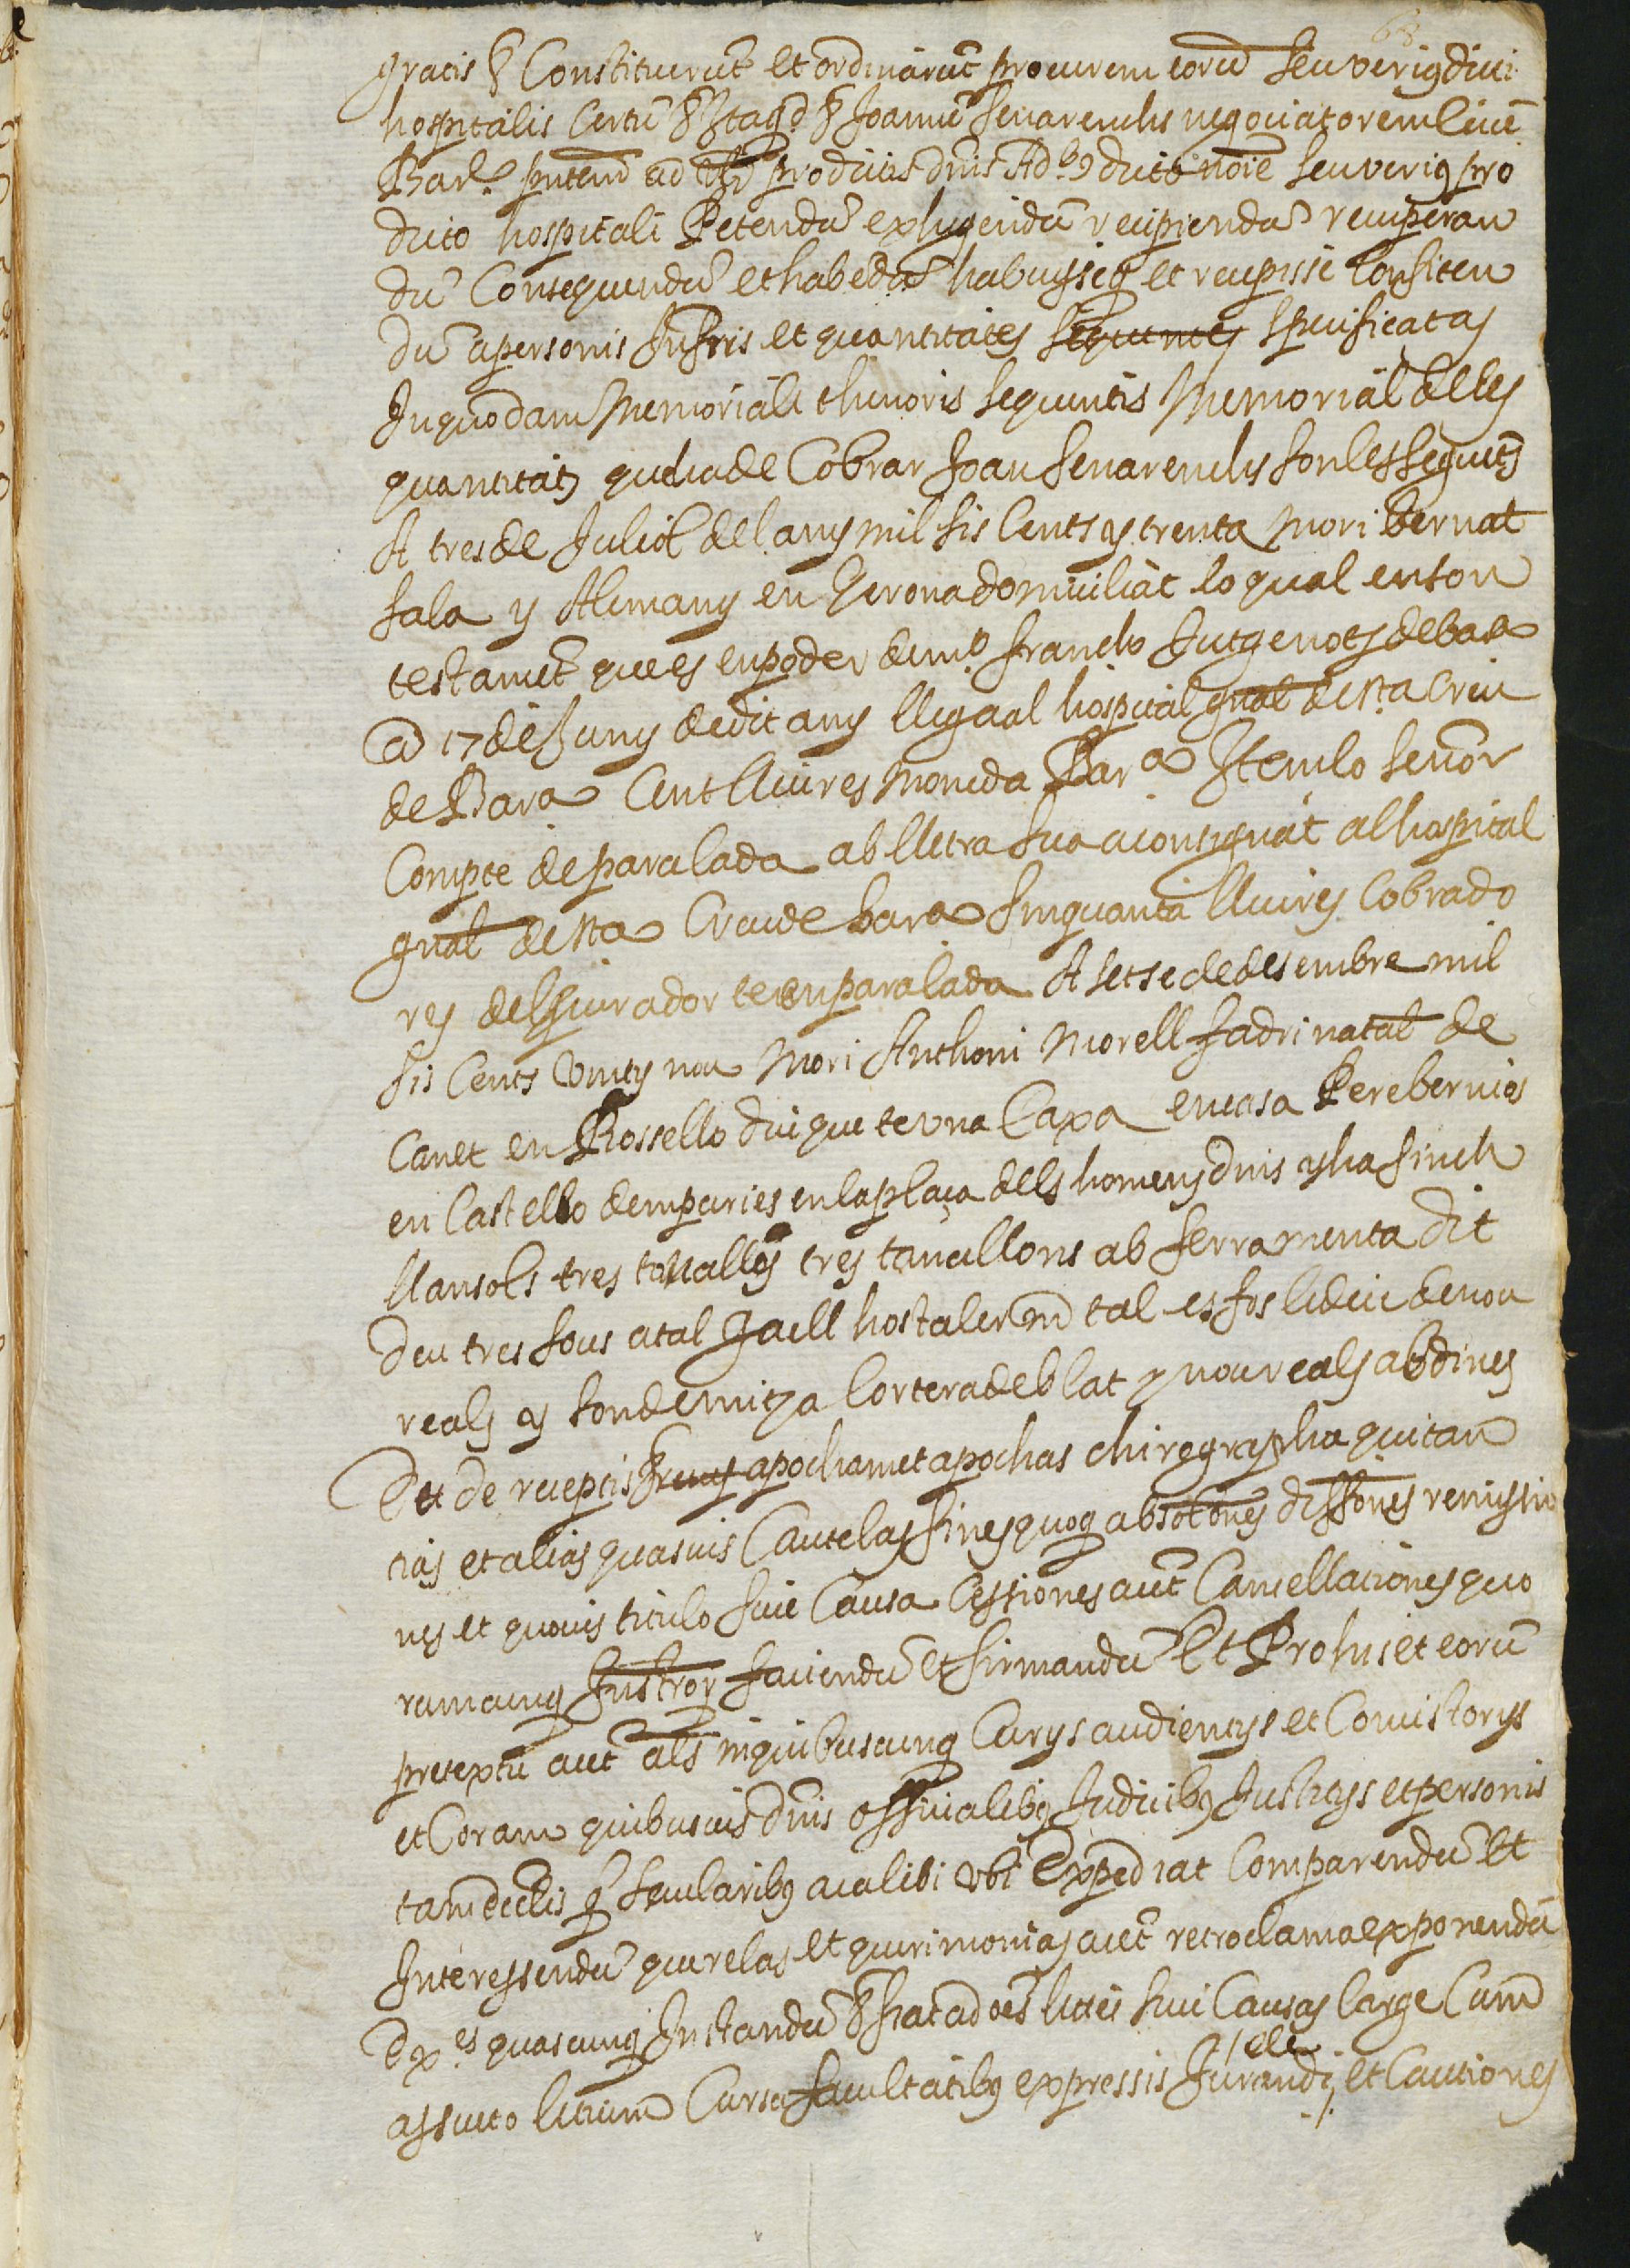 gratis & Constituerut et ordinarut procurem eoru seu verius dicti
hospitalis Certu & Itaqd & Joannu Senarenchs negociatorem Civē
Barᵉ. pntem ad pro dictis dnis Adᵇ⁹ dicto noīe seu verius pro
dicto hospitali Petendu exhigendu recipiendu recuperan
du Consequendu et habedu habuisseq et recepisse Confiten
du a personis Infris et quantitates sequentes specificatas
In quodam Memoriali thenoris sequentis Memorial de les
quantitats que ha de Cobrar Joan Senarenchs son les seguets
A tres de Juliol del any mil sis Cents y trenta mori bernat
sala y Alemany en Gerona domiciliat lo qual en son
testamet que es en poder de mᵒ franch Jutge notj deba
a 17 de Juny de dit any llega al hospital gnal de sta Creu
de Bara Cent lliures moneda Barᵃ Item lo senor
Compte de paralada ab lletra sua a consignat al hospital
gnal de sta Creu de bara sinquanta lliures Cobrado
res del procurador te en paralada A setse de desembre mil
sis Cents vint y nou mori Anthoni Morell fadri natal de
Canet en Rossello diu que te vna Caxa en casa Pere bernies
en Castello dempuries en la plaça dels homens dins y ha sinch
llansols tres toualles tres tauallons ab serramenta dit
deu tres sous a tal Jaell hostaler nd tal es fos li deu de nou
reals y son de mitja Cortera de blat y nou reals ab dines
Et de receptis apocham et apochas chirographa quitan
cias et alias quasuis Cautelas fines quoq absolones diffiones remissio
nes et quouis titulo siue Causa Cessiones aut Cancellationes quo
rumcunq Instror faciendu et firmandu Et Pro his et eoru
pretextu aut als in quibuscunq Curys audientys et Consistorys
et Coram quibusuis dnis officialibus Judicibus Justitys et personis
tam ecclis q secularibus ac alibi vbi Expediat Comparendu Et
Interessendu querelas et querimonias aut retroclama exponendu
Exᵉˢ quascunq Instandu & fiat ad oēs lites siue Causas large Cum
assueto litium Cursu facultatibus expressis Jurandi et Cautiones